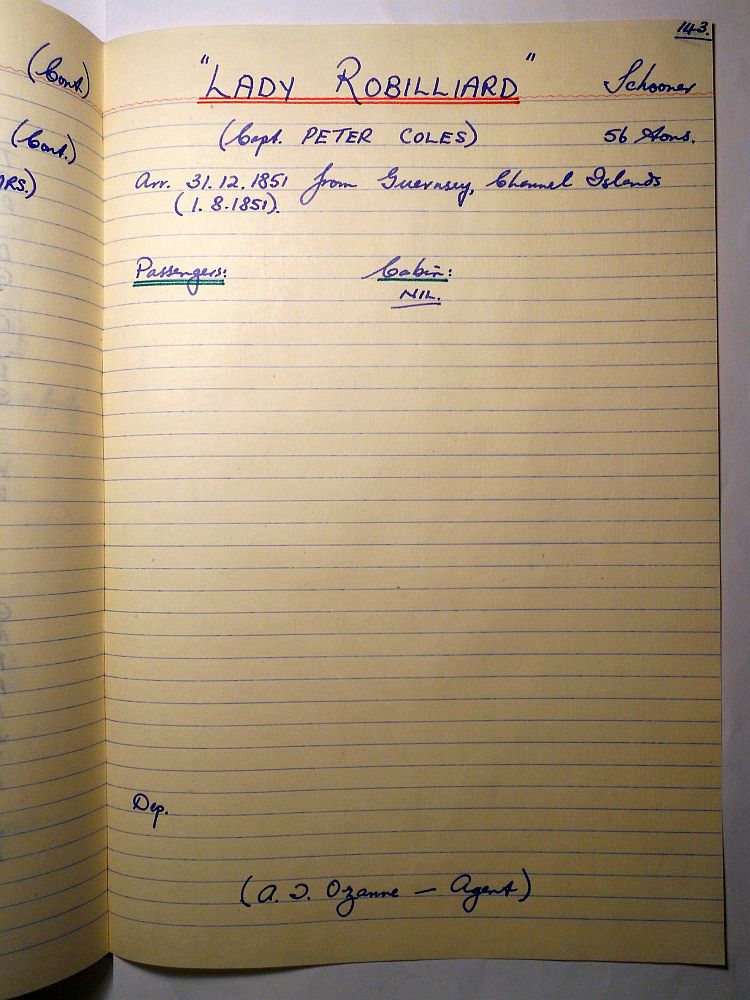 143.
(Cont)
(Cont.)
MRS.)
"LADY ROBILLIARD" Schooner
(Capt. PETER COLES) 56 tons.
Arr. 31.12.1851 from Guernsey, Channel Islands
(1.8.1851).
Passengers: Cabin:
NIL.
Dep.
(A. J. Ozanne — Agent)